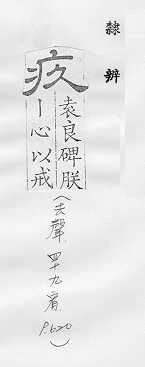 隸辨
疚
袁良碑朕
丨心以戒
(去聲 四十九宥 P.620)